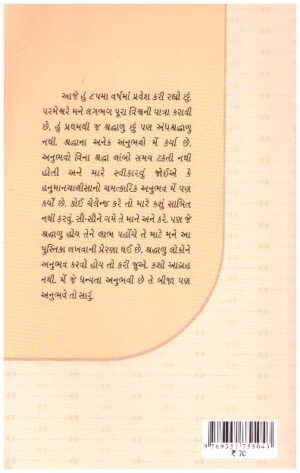 આજે હું ૮૫મા વર્ષમાં પ્રવેશ કરી રહ્યો છું.
પરમેશ્વરે મને લગભગ પૂરા વિશ્વની યાત્રા કરાવી
છે. હું પ્રથમથી જ શ્રદ્ધાળુ છું પણ અંધશ્રદ્ધાળુ
નથી. શ્રદ્ધાના અનેક અનુભવો મેં કર્યા છે.
અનુભવો વિના શ્રદ્ધા લાંબો સમય ટકતી નથી
હોતી અને મારે સ્વીકારવું જોઈએ કે
હનુમાનચાલીસાનો ચમત્કારિક અનુભવ મેં પણ
કર્યો છે. કોઈ ચેલેન્જ કરે તો મારે કશું સાબિત
નથી કરવું. સૌ-સૌને ગમે તે માને અને કરે. પણ જે
શ્રદ્ધાળુ હોય તેને લાભ પહોંચે તે માટે મને આ
પુસ્તિકા લખવાની પ્રેરણા થઈ છે. શ્રદ્ધાળુ લોકોને
અનુભવ કરવો હોય તો કરી જુએ. કશો આગ્રહ
નથી. મેં જે ધન્યતા અનુભવી છે તે ત્રીજા પણ
અનુભવે તો સારું.
9789351755043
₹ 70